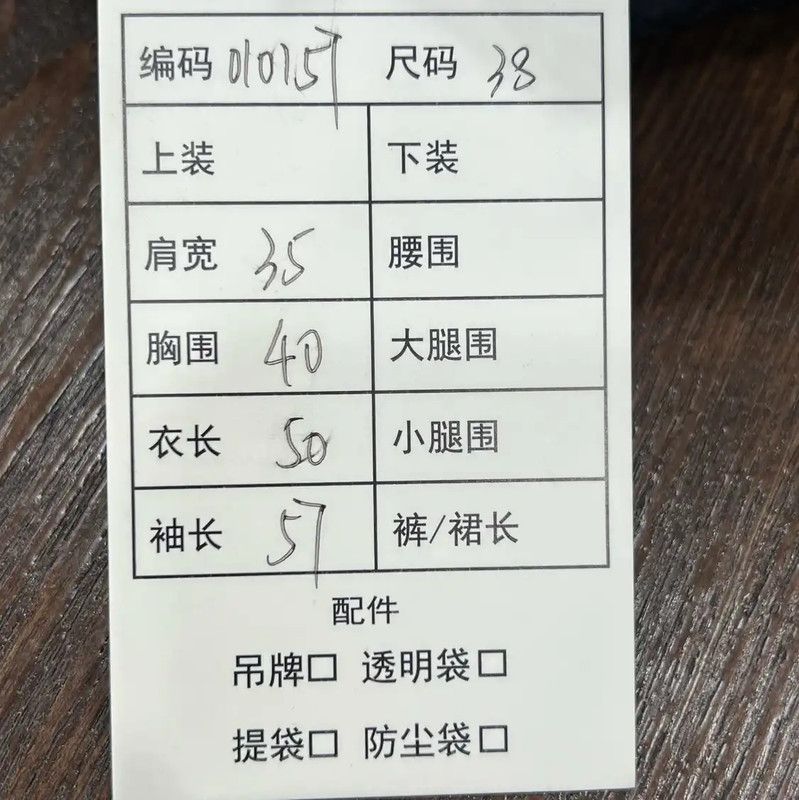 编码 010157 尺码 38
上装 下装
肩宽 35 腰围
胸围 40 大腿围
衣长 50 小腿围
袖长 57 裤/裙长
配件
吊牌□ 透明袋□
提袋□ 防尘袋□